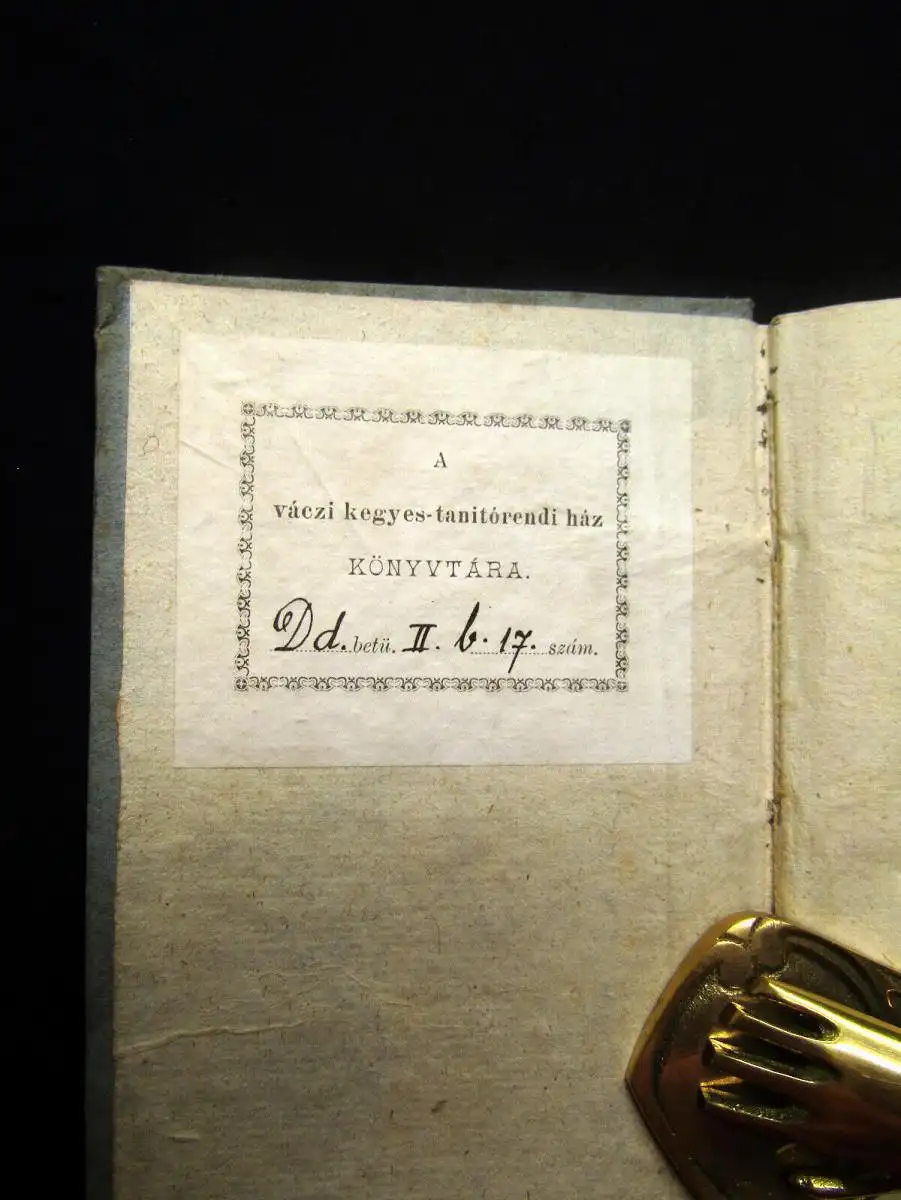 A
váczi kegyes-tanitórendi ház
KÖNYVTÁRA.
Dd. betü. II. b. 17. szám.